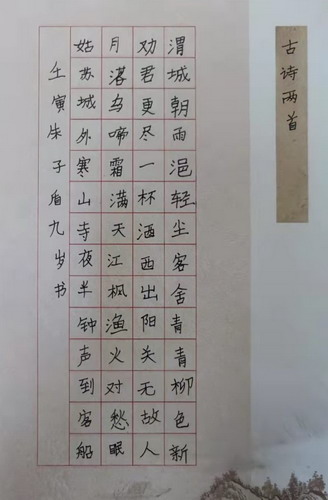 古诗两首
渭城朝雨浥轻尘客舍青青柳色新
劝君更尽一杯酒西出阳关无故人
月落乌啼霜满天江枫渔火对愁眠
姑苏城外寒山寺夜半钟声到客船
壬寅朱子盾九岁书